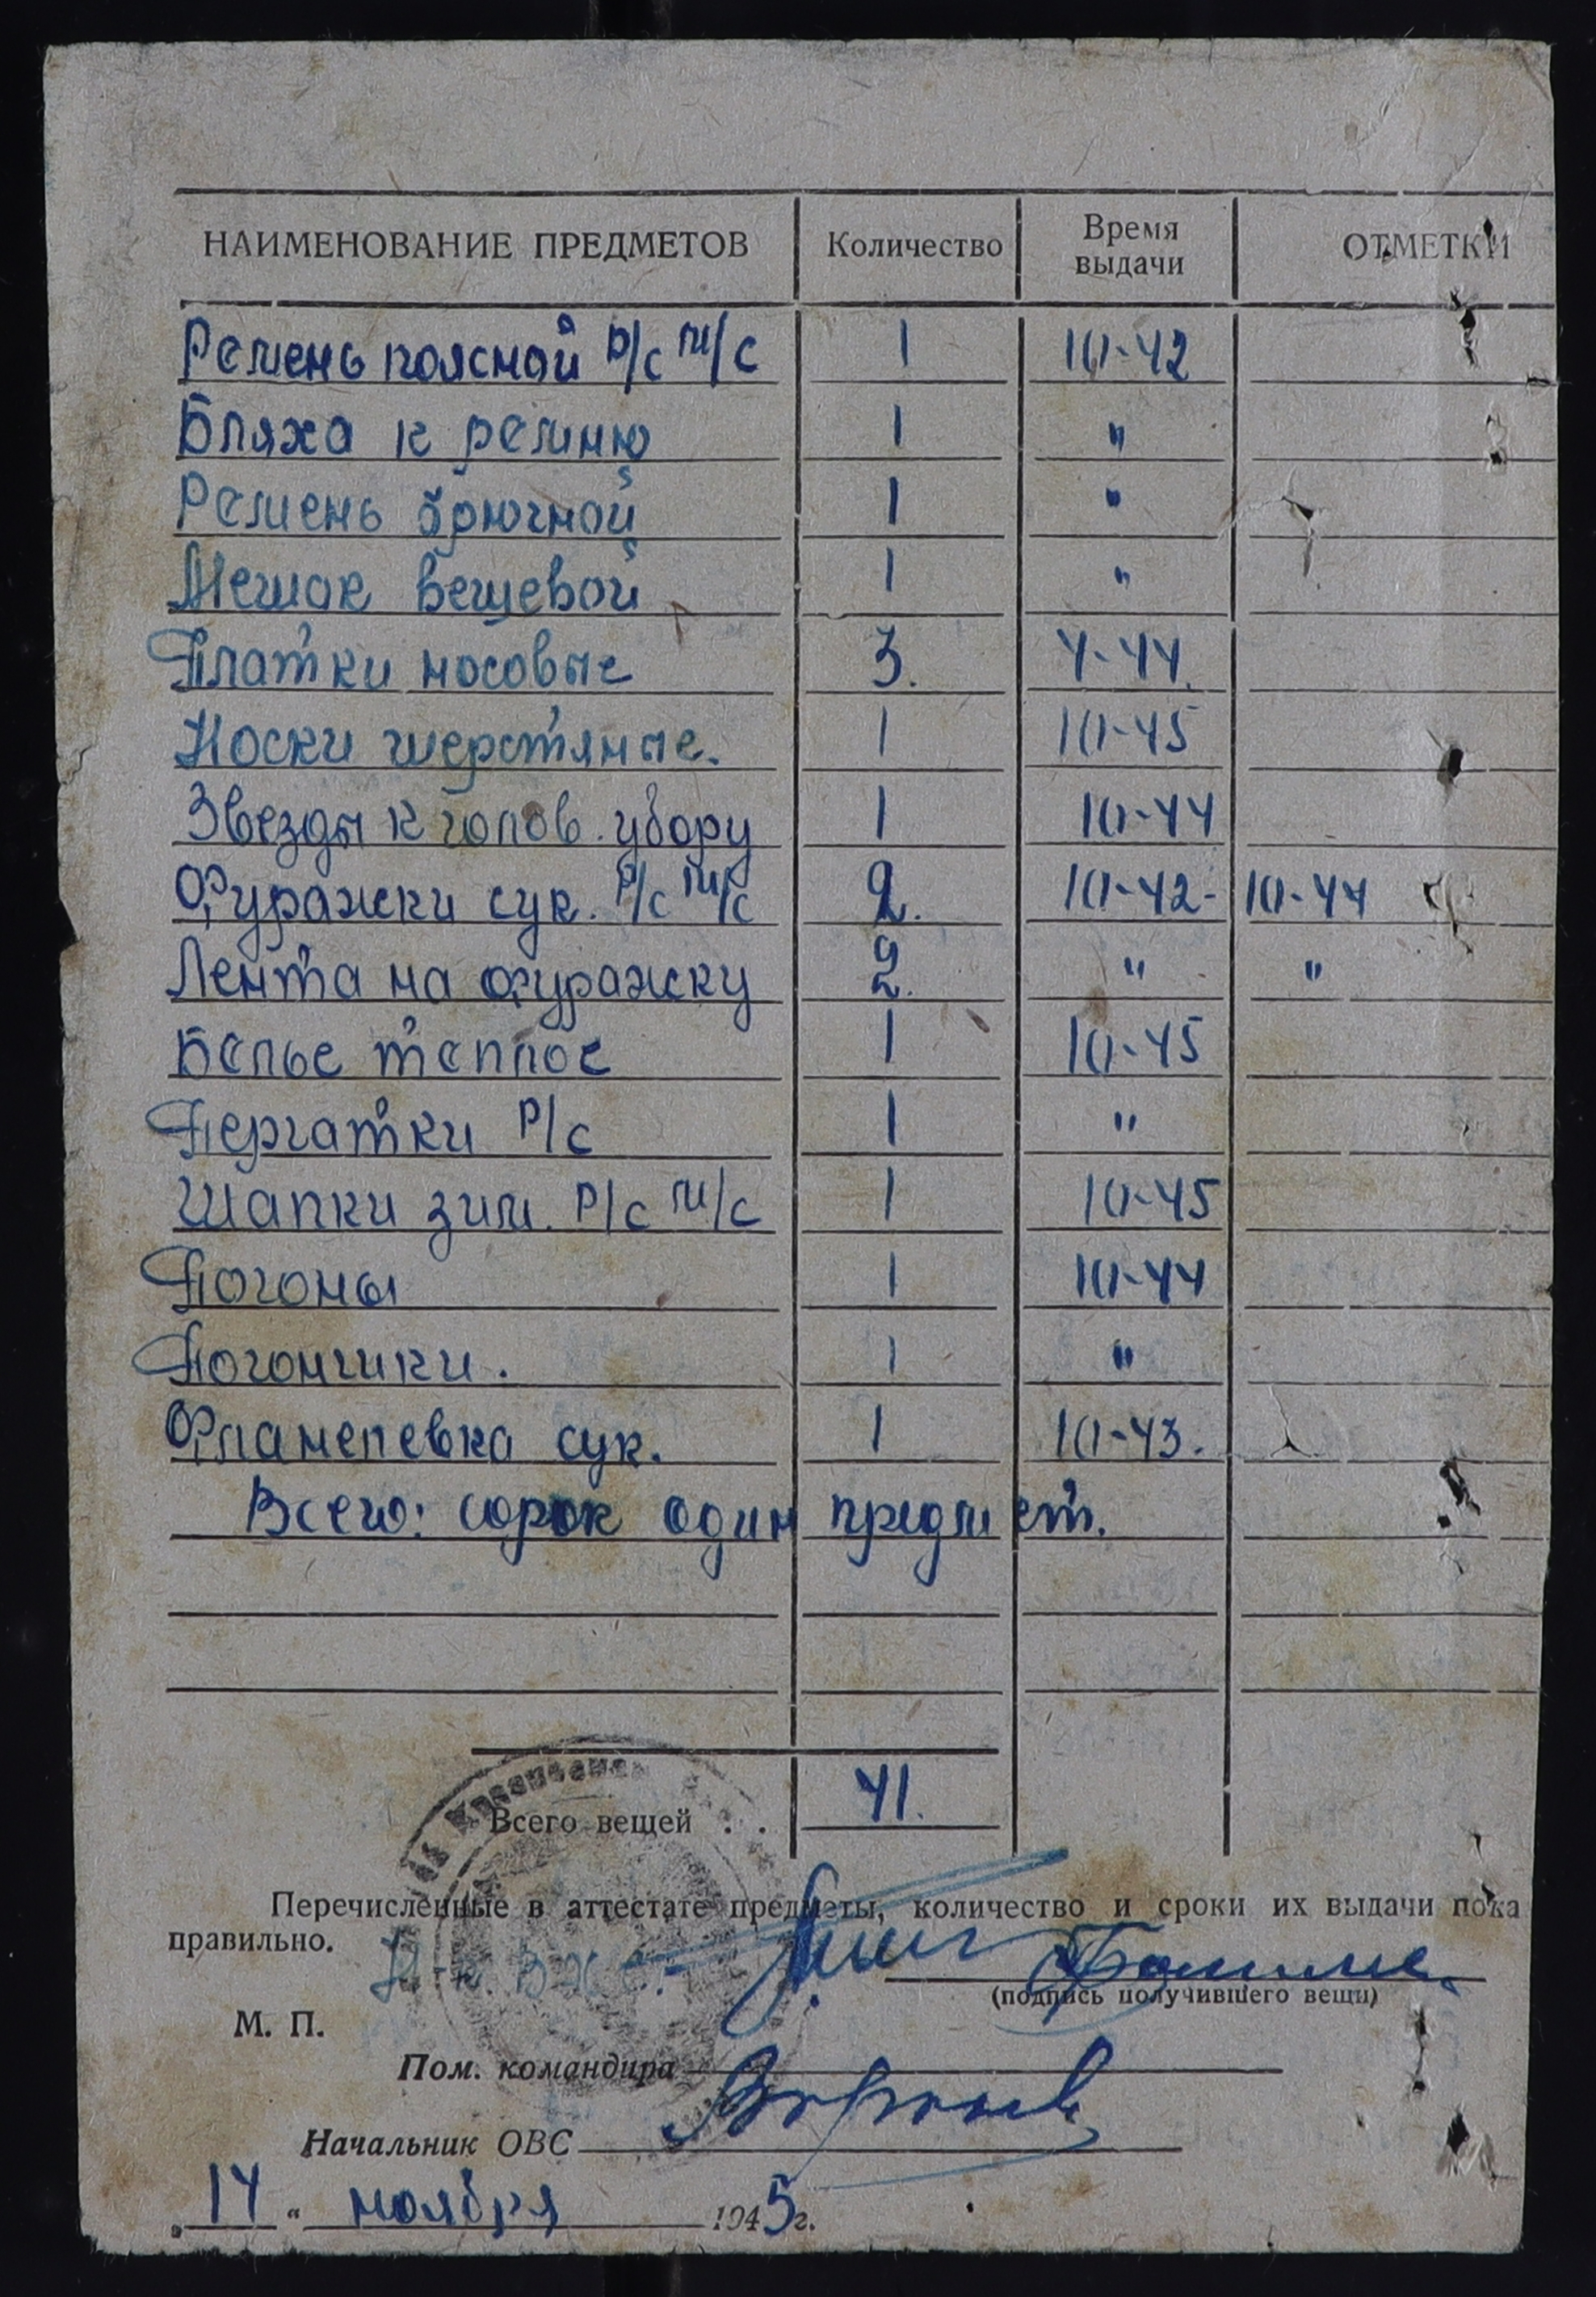 НАИМЕНОВАНИЕ ПРЕДМЕТОВ Количество Время выдачи ОТМЕТКИ
Ремень поясной р/с м/с 1 10-42
Бляха к ремню 1 "
Ремень брючной 1 "
Мешок вещевой 1 "
Платки носовые 3. 4-44.
Носки шерстяные. 1 10-45
Звезды к голов. убору 1 10-44
Фуражки сук. р/с м/с 2. 10-42- 10-44
Лента на фуражку 2. " "
Белье теплое 1 10-45
Перчатки р/с 1 "
Шапки зим. р/с м/с 1 10-45
Погоны 1 10-44
Погончики. 1 "
Фланелевка сук. 1 10-43.
Всего: сорок один предмет.
41.
Всего вещей . .
Перечисленные в аттестате предметы, количество и сроки их выдачи пока
правильно.
(подпись получившего вещи)
М. П.
Пом. командира
Начальник ОВС
„14" ноября 1945г.